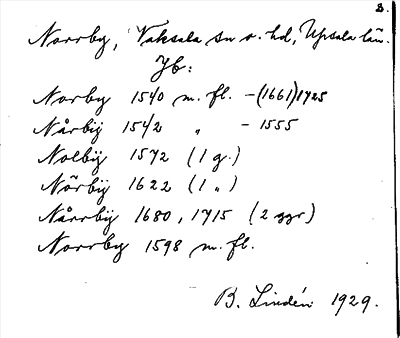 B.
Norrby, Vaksala sn o. hd, Upsala län.
Jb:
Norby 1540 m. fl. - (1661) 1725
Nårbij 1542 " - 1555
Nolbÿ 1572 (1 g.)
Nörbÿ 1622 (1 „)
Nårrbÿ 1680, 1715 (2 ggr)
Norrby 1598 m. fl.
B. Lindén 1929.